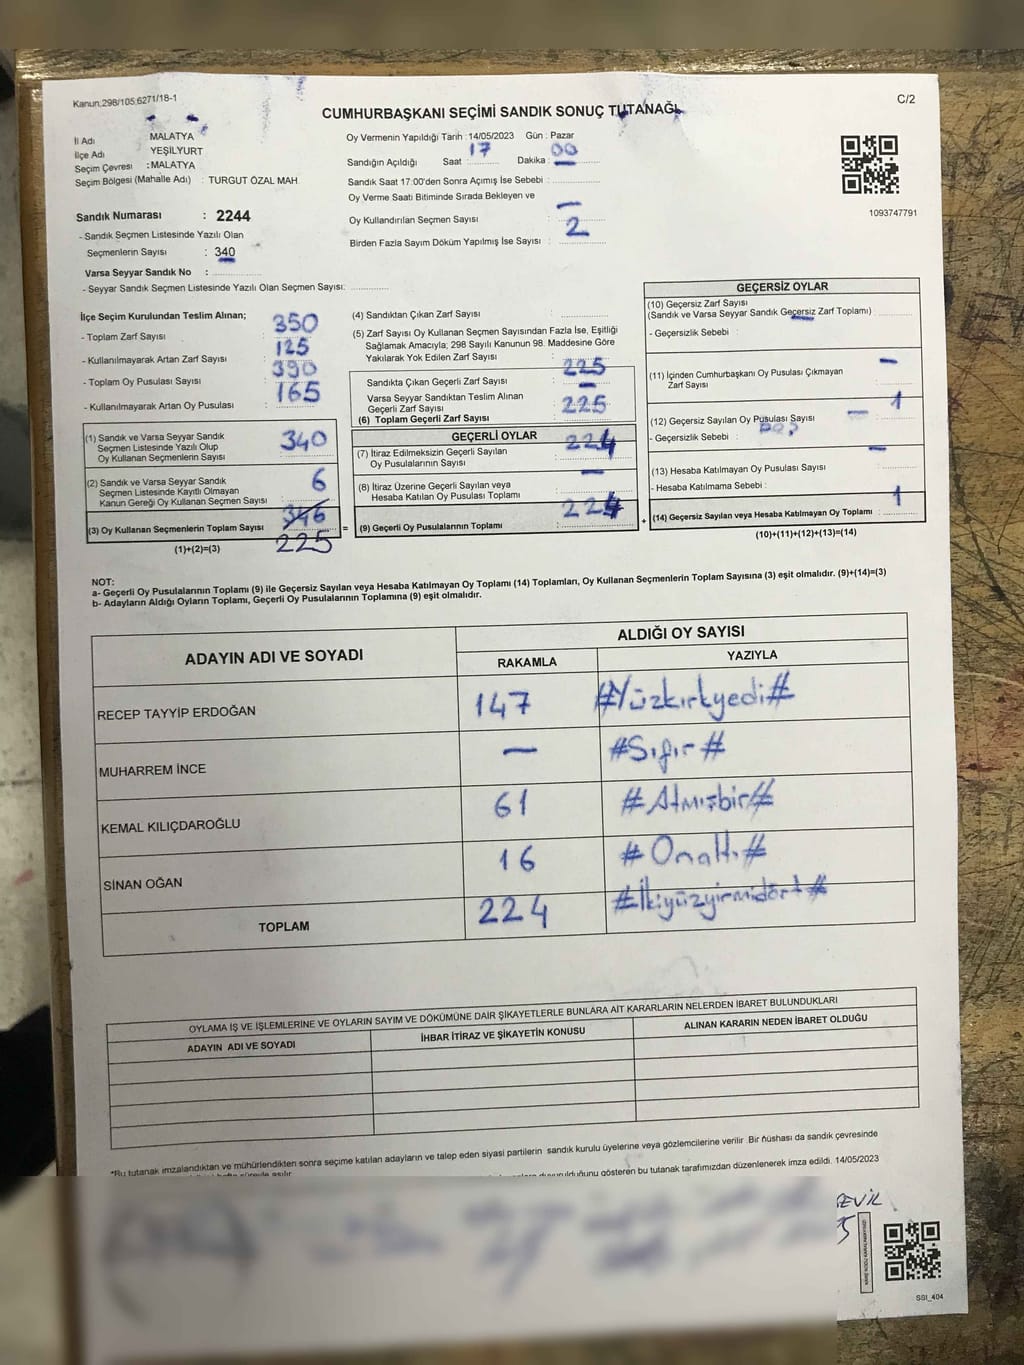 Kanun:298/105;6271/18-1
C/2
CUMHURBAŞKANI SEÇİMİ SANDIK SONUÇ TUTANAĞI
İl Adı MALATYA
İlçe Adı YEŞİLYURT
Seçim Çevresi :MALATYA
Seçim Bölgesi (Mahalle Adı) : TURGUT ÖZAL MAH.
Sandık Numarası : 2244
- Sandık Seçmen Listesinde Yazılı Olan
Seçmenlerin Sayısı : 340
Varsa Seyyar Sandık No :
- Seyyar Sandık Seçmen Listesinde Yazılı Olan Seçmen Sayısı:
Oy Vermenin Yapıldığı Tarih :14/05/2023 Gün : Pazar
Sandığın Açıldığı Saat : 17 Dakika : 00
Sandık Saat 17:00'den Sonra Açımış İse Sebebi :
Oy Verme Saati Bitiminde Sırada Bekleyen ve
Oy Kullandırılan Seçmen Sayısı : —
Birden Fazla Sayım Döküm Yapılmış İse Sayısı : 2
1093747791
İlçe Seçim Kurulundan Teslim Alınan;
- Toplam Zarf Sayısı : 350
- Kullanılmayarak Artan Zarf Sayısı : 125
- Toplam Oy Pusulası Sayısı : 390
- Kullanılmayarak Artan Oy Pusulası : 165
(1) Sandık ve Varsa Seyyar Sandık
Seçmen Listesinde Yazılı Olup
Oy Kullanan Seçmenlerin Sayısı : 340
(2) Sandık ve Varsa Seyyar Sandık
Seçmen Listesinde Kayıtlı Olmayan
Kanun Gereği Oy Kullanan Seçmen Sayısı : 6
(3) Oy Kullanan Seçmenlerin Toplam Sayısı : 346
(1)+(2)=(3) 225
(4) Sandıktan Çıkan Zarf Sayısı :
(5) Zarf Sayısı Oy Kullanan Seçmen Sayısından Fazla İse, Eşitliği
Sağlamak Amacıyla; 298 Sayılı Kanunun 98. Maddesine Göre
Yakılarak Yok Edilen Zarf Sayısı :
Sandıkta Çıkan Geçerli Zarf Sayısı : 225
Varsa Seyyar Sandıktan Teslim Alınan
Geçerli Zarf Sayısı : —
(6) Toplam Geçerli Zarf Sayısı : 225
GEÇERLİ OYLAR
(7) İtiraz Edilmeksizin Geçerli Sayılan
Oy Pusulalarının Sayısı : 224
(8) İtiraz Üzerine Geçerli Sayılan veya
Hesaba Katılan Oy Pusulası Toplamı : —
= (9) Geçerli Oy Pusulalarının Toplamı : 224
GEÇERSİZ OYLAR
(10) Geçersiz Zarf Sayısı
(Sandık ve Varsa Seyyar Sandık Geçersiz Zarf Toplamı) :
- Geçersizlik Sebebi :
(11) İçinden Cumhurbaşkanı Oy Pusulası Çıkmayan
Zarf Sayısı : —
(12) Geçersiz Sayılan Oy Pusulası Sayısı : 1
- Geçersizlik Sebebi :
(13) Hesaba Katılmayan Oy Pusulası Sayısı : —
- Hesaba Katılmama Sebebi :
+ (14) Geçersiz Sayılan veya Hesaba Katılmayan Oy Toplamı : 1
(10)+(11)+(12)+(13)=(14)
NOT:
a- Geçerli Oy Pusulalarının Toplamı (9) ile Geçersiz Sayılan veya Hesaba Katılmayan Oy Toplamı (14) Toplamları, Oy Kullanan Seçmenlerin Toplam Sayısına (3) eşit olmalıdır. (9)+(14)=(3)
b- Adayların Aldığı Oyların Toplamı, Geçerli Oy Pusulalarının Toplamına (9) eşit olmalıdır.
ADAYIN ADI VE SOYADI
ALDIĞI OY SAYISI
RAKAMLA YAZIYLA
RECEP TAYYİP ERDOĞAN 147 #Yüzkırkyedi#
MUHARREM İNCE — #Sıfır#
KEMAL KILIÇDAROĞLU 61 #Atmışbir#
SİNAN OĞAN 16 #Onaltı#
TOPLAM 224 #İkiyüzyirmidört#
OYLAMA İŞ VE İŞLEMLERİNE VE OYLARIN SAYIM VE DÖKÜMÜNE DAİR ŞİKAYETLERLE BUNLARA AİT KARARLARIN NELERDEN İBARET BULUNDUKLARI
ADAYIN ADI VE SOYADI İHBAR İTİRAZ VE ŞİKAYETİN KONUSU ALINAN KARARIN NEDEN İBARET OLDUĞU
*Bu tutanak imzalandıktan ve mühürlendikten sonra seçime katılan adayların ve talep eden siyasi partilerin sandık kurulu üyelerine veya gözlemcilerine verilir. Bir nüshası da sandık çevresinde
duyurulduğunu gösteren bu tutanak tarafımızdan düzenlenerek imza edildi. 14/05/2023
SSI_404